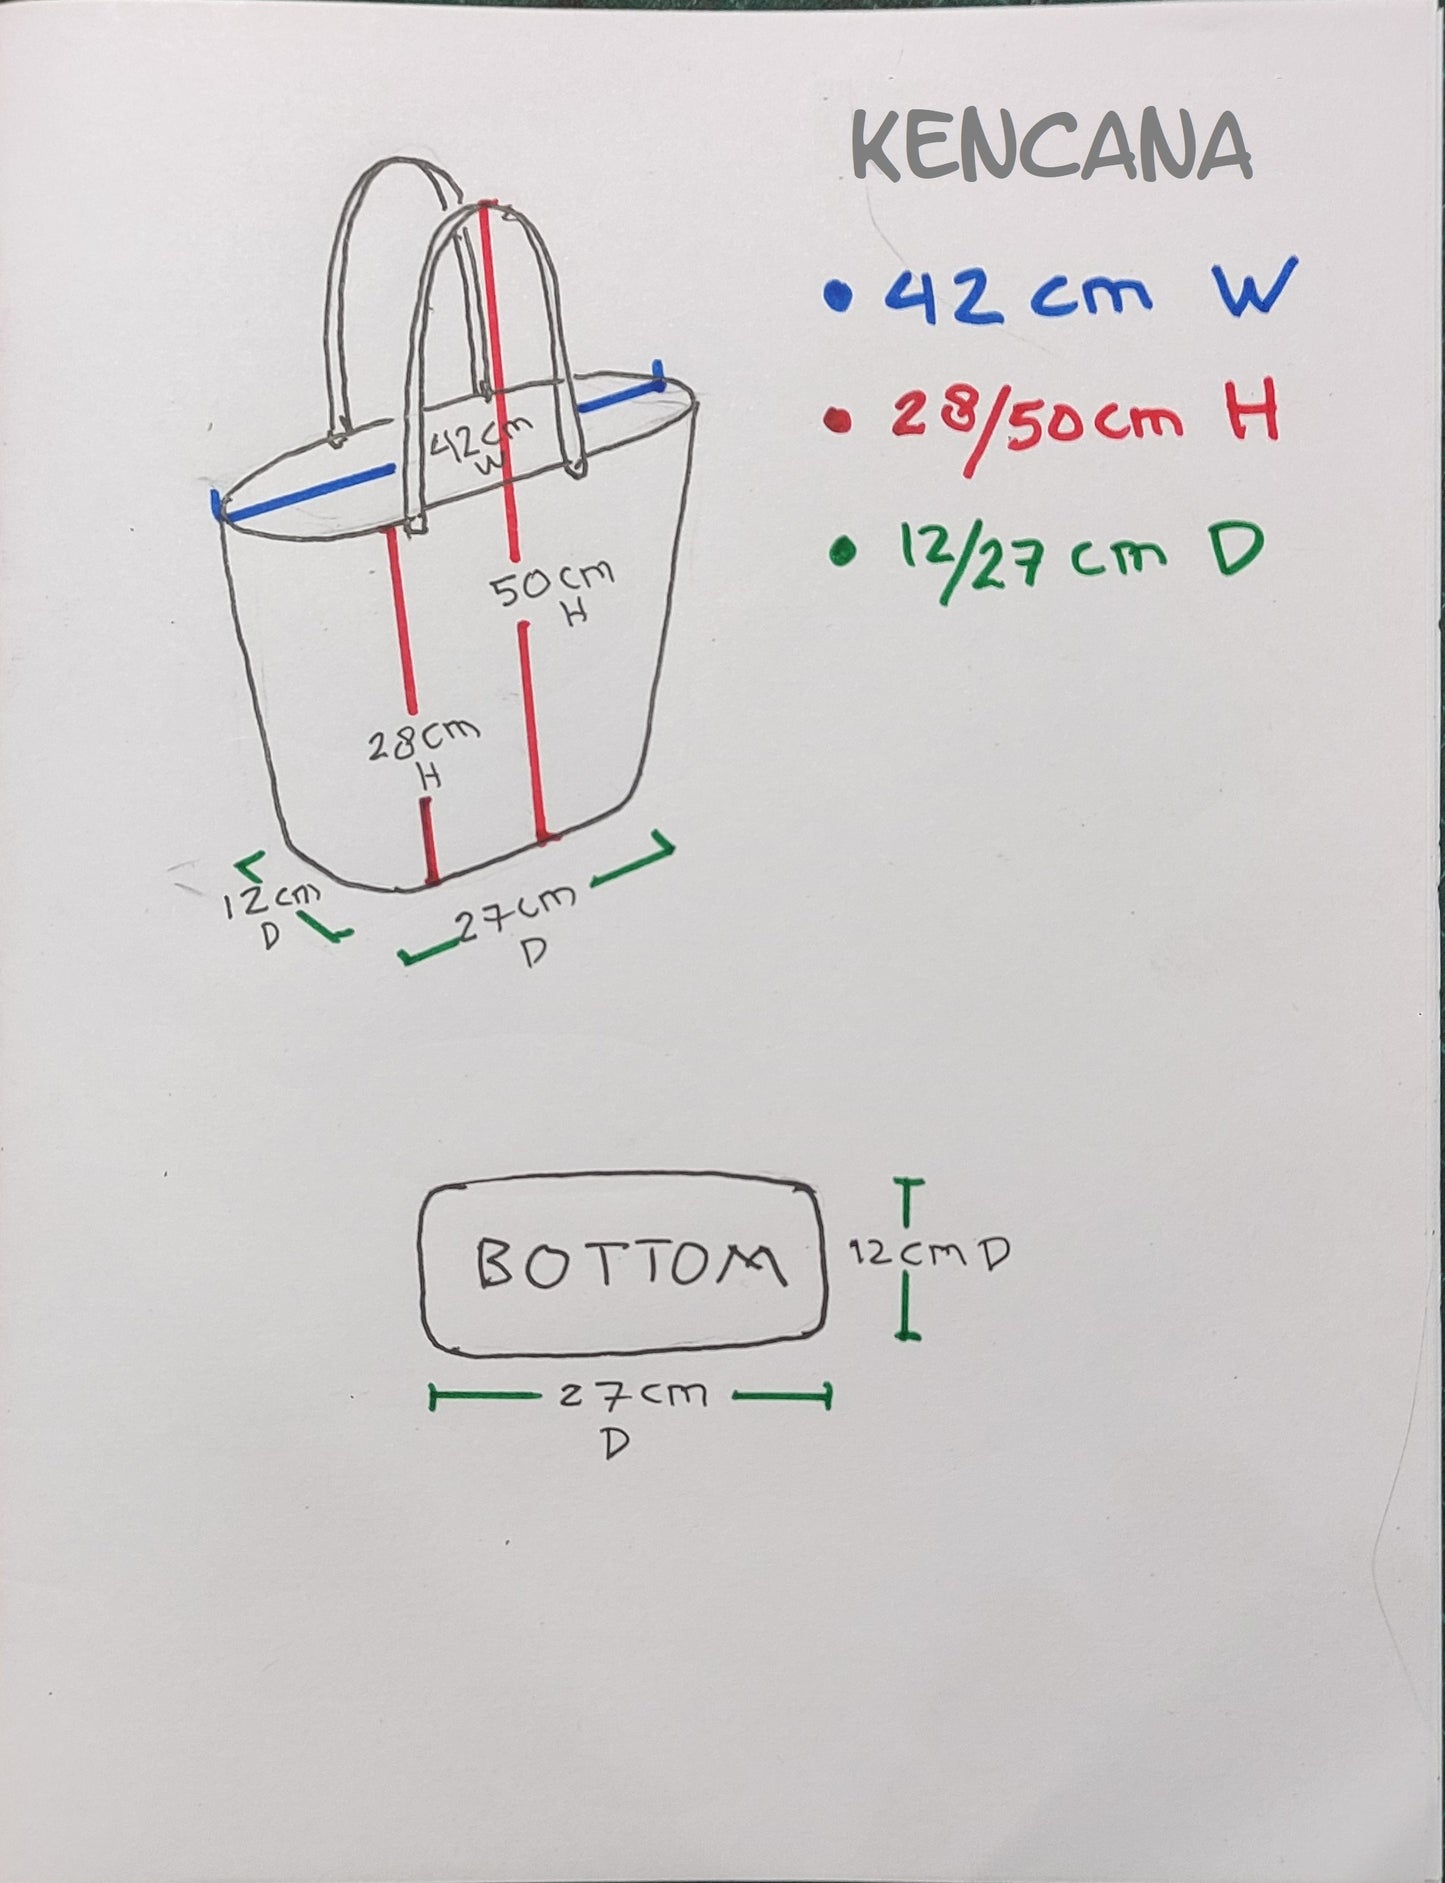 KENCANA
• 42 cm W
• 28/50 cm H
• 12/27 cm D
42cm
W
50cm
H
28cm
H
12cm
D
27cm
D
BOTTOM
12cm D
27cm
D